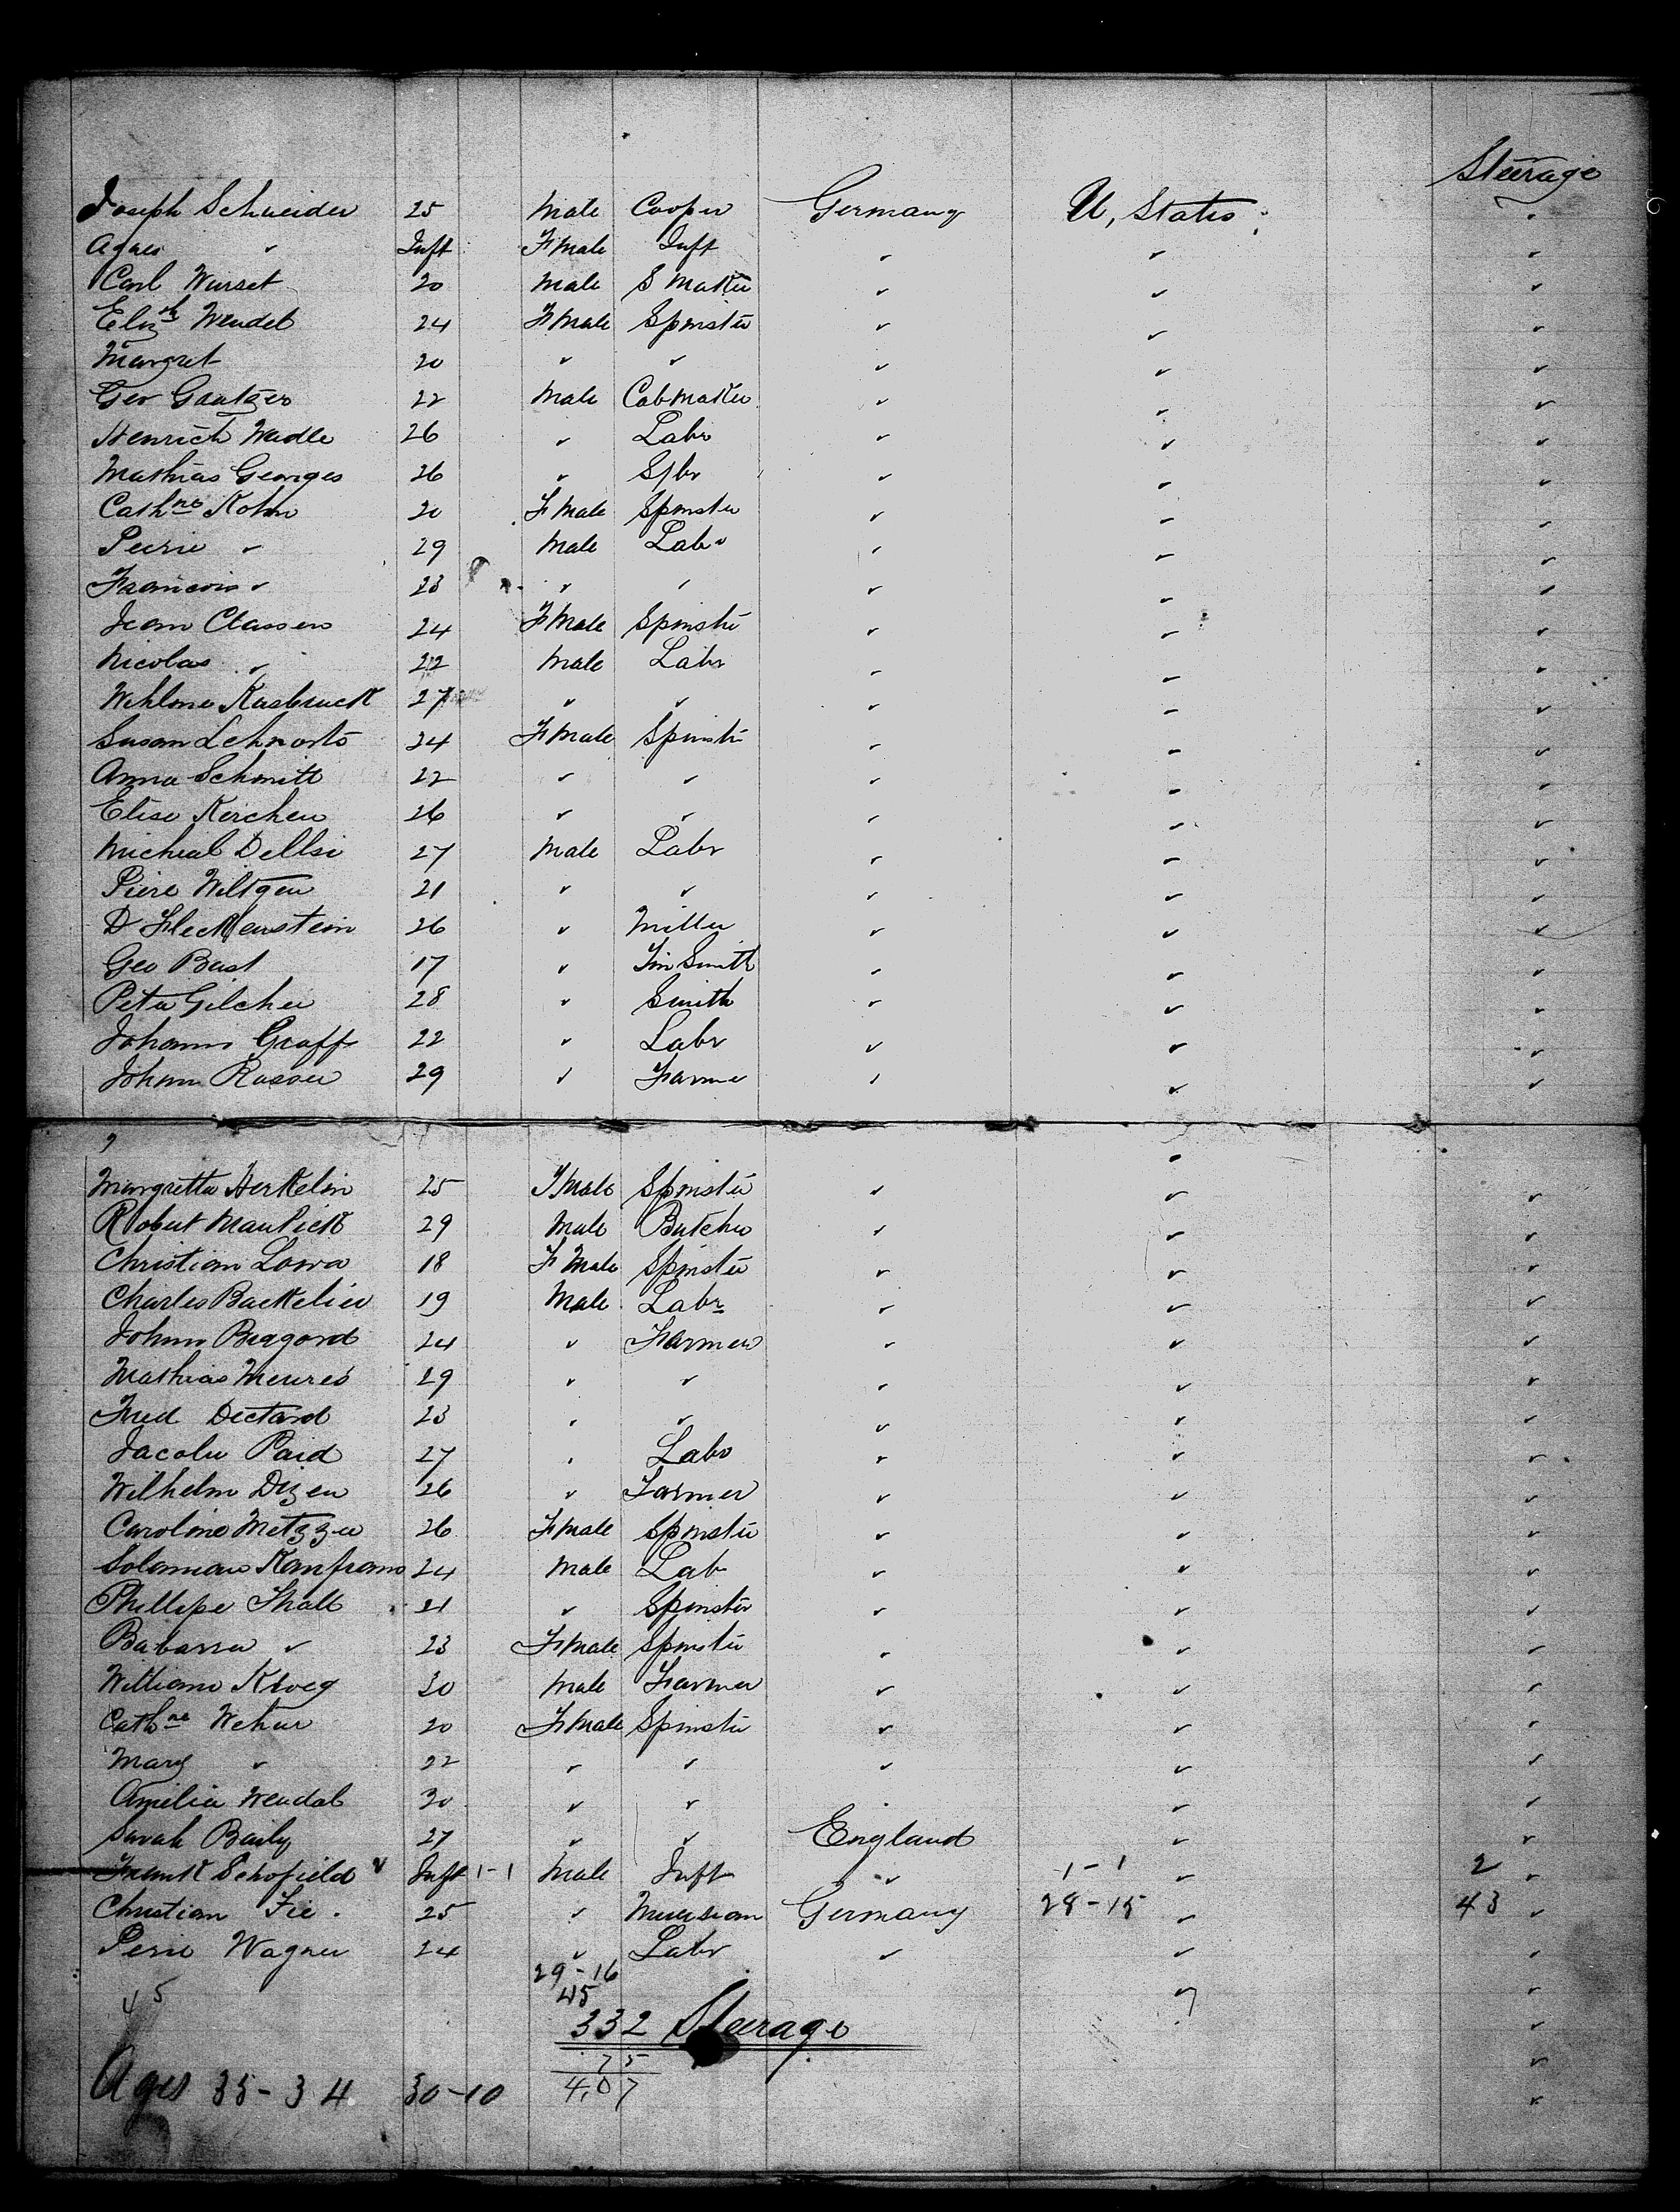 Steerage
Joseph Schneider 25 Male Cooper Germany U, States
Agnes " Inft F Male Inft " " "
Carl Wurset 20 Male S Maker " " "
Elizth Wendel 24 F Male Spinster " " "
Margret 20 " " " " "
Geo Gantzer 22 Male Cab Maker " " "
Henrich Wedle 26 " Labr " " "
Mathias Georges 26 " " " "
Cathne Kohn 20 F Male Spinster " " "
Peirie " 29 Male Labr " " "
Francois " 23 " " " " "
Jean Classen 24 F Male Spinster " " "
Nicolas " 22 Male Labr " " "
Kasbruck 27 " " " " "
Susan Lehnorts 24 F Male Spinster " " "
Anna Schmitt 22 " " " " "
Elise Kirchen 26 " " " " "
Micheal Dellsi 27 Male Labr " " "
Piere Wiltgen 21 " " " " "
D Fleckenstein 26 " Miller " " "
Geo Bast 17 " Tin Smith " " "
Peter Gilcher 28 " Smith " " "
Johann Graff 22 " Labr " " "
Johann Rasser 29 " Farmer " " "
Margretta Herkelin 25 F Male Spinster " " "
Robert Maulick 29 Male Butcher " " "
Christian Lowa 18 F Male Spinster " " "
Charles Backelier 19 Male Labr " " "
Johnn Bregard 24 " Farmer " " "
Mathias Meures 29 " " " " "
Fred Dectard 23 " " " " "
Jacolu Paid 27 " Labr " " "
Wilhelm Dizen 26 " Farmer " " "
Caroline Metzzer 26 F Male Spinster " " "
Solaman Kanfrano 24 Male Lab " " "
Phillipe Thall 21 " Spinster " " "
Babarra " 23 F Male Spinster " " "
William Kroeg 30 Male Farmer " " "
Cathne Wehur 20 F Male Spinster " " "
Mary " 22 " " " " "
Amelia Wendal 30 " " " " "
Sarah Baily 27 " " England " "
Frank Schofield Inft 1-1 Male Inft " 1-1 " 2 "
Christian Fie 25 " Musician Germany 28-15 " 43 "
Perie Wagner 24 " Labr " " "
29-16
45 45
332 Steerage
75
Ages 35-34 30-10 4,07